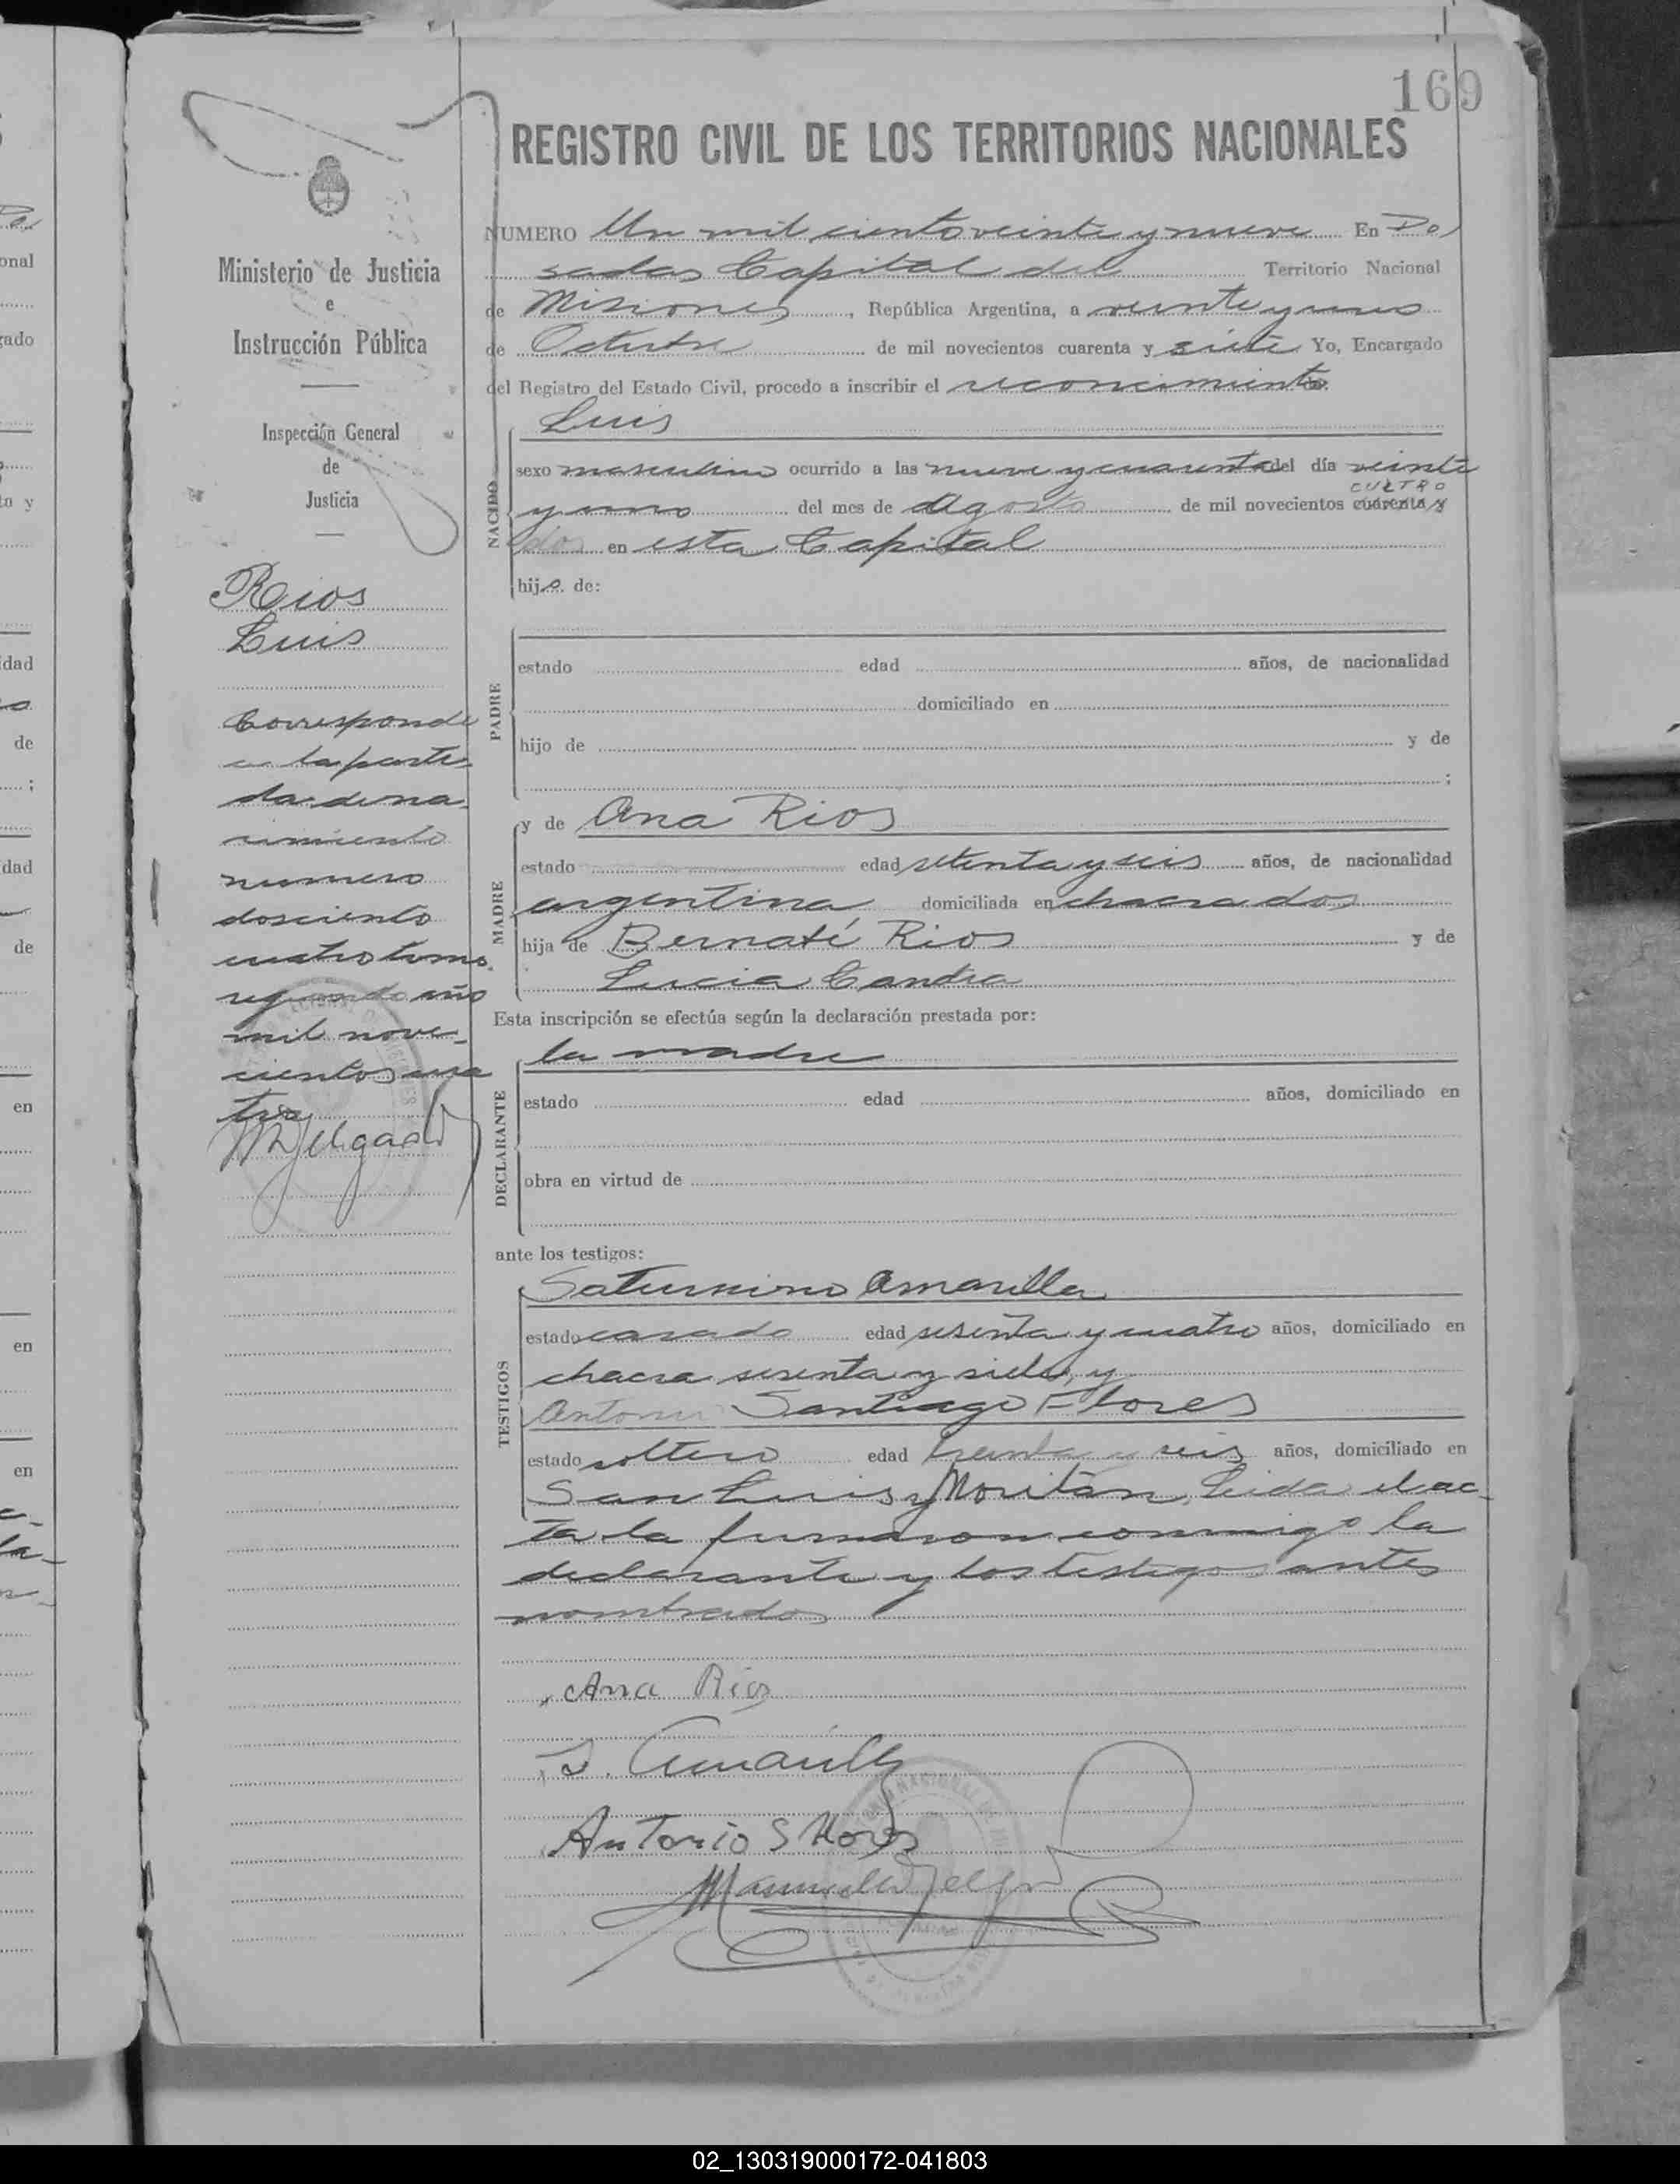 169
REGISTRO CIVIL DE LOS TERRITORIOS NACIONALES
Ministerio de Justicia
e
Instrucción Pública
Inspección General
de
Justicia
Rios
Luis
Corresponde
a la parti-
da de na-
cimiento
numero
dosciento
cuatro tomo
segundo año
mil nove-
cientos cua
tro
MDelgado
NUMERO Un mil ciento veinte y nueve En Po
sadas Capital del Territorio Nacional
de Misiones, República Argentina, a veinte y uno
de Octubre de mil novecientos cuarenta y siete Yo, Encargado
del Registro del Estado Civil, procedo a inscribir el reconocimiento
NACIDO
Luis
sexo masculino ocurrido a las nueve y cuarenta del día veinte
y uno del mes de Agosto de mil novecientos cuarenta y
CUATRO
dos en esta Capital
hijo de:
PADRE
estado edad años, de nacionalidad
domiciliado en
hijo de y de
;
MADRE
y de Ana Rios
estado edad setenta y seis años, de nacionalidad
argentina domiciliada en chacra dos
hija de Bernabé Rios y de
Lucia Candia
Esta inscripción se efectúa según la declaración prestada por:
DECLARANTE
la madre
estado edad años, domiciliado en
obra en virtud de
ante los testigos:
TESTIGOS
Saturnino Amarilla
estado casado edad sesenta y cuatro años, domiciliado en
chacra sesenta y siete, y
Antonio Santiago Flores
estado soltero edad treinta y seis años, domiciliado en
San Luis y Moritán, Leida el ac-
ta la firmaron conmigo la
declarante y los testigos antes
nombrados
Ana Rios
S. Amarilla
Antonio S Flores
Manuel Delgado
02_130319000172-041803